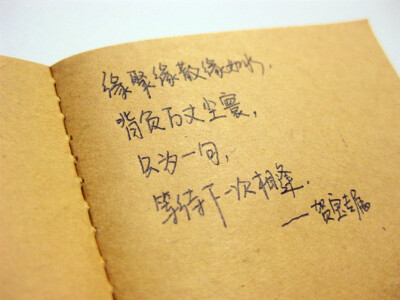 缘聚缘散缘如水,
背负万丈尘寰,
只为一句,
等待下一次相逢.
——贺